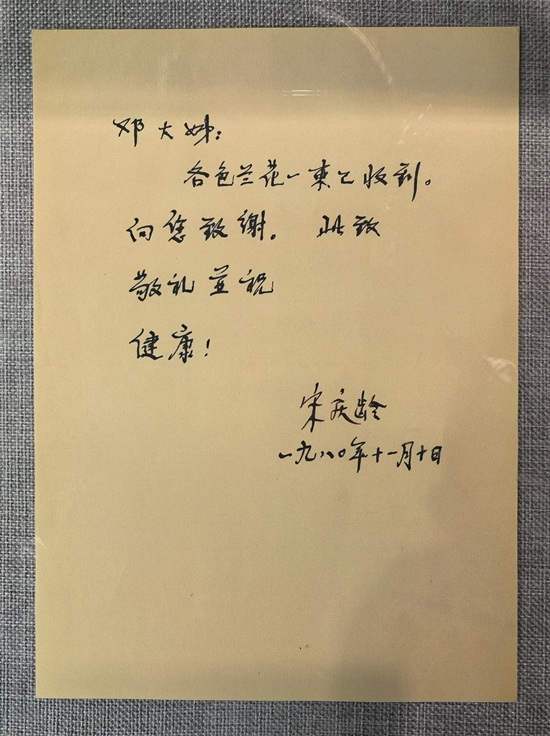 邓大姊：
各色兰花一束已收到。
向您致谢。 此致
敬礼并祝
健康！
宋庆龄
一九八〇年十一月十日